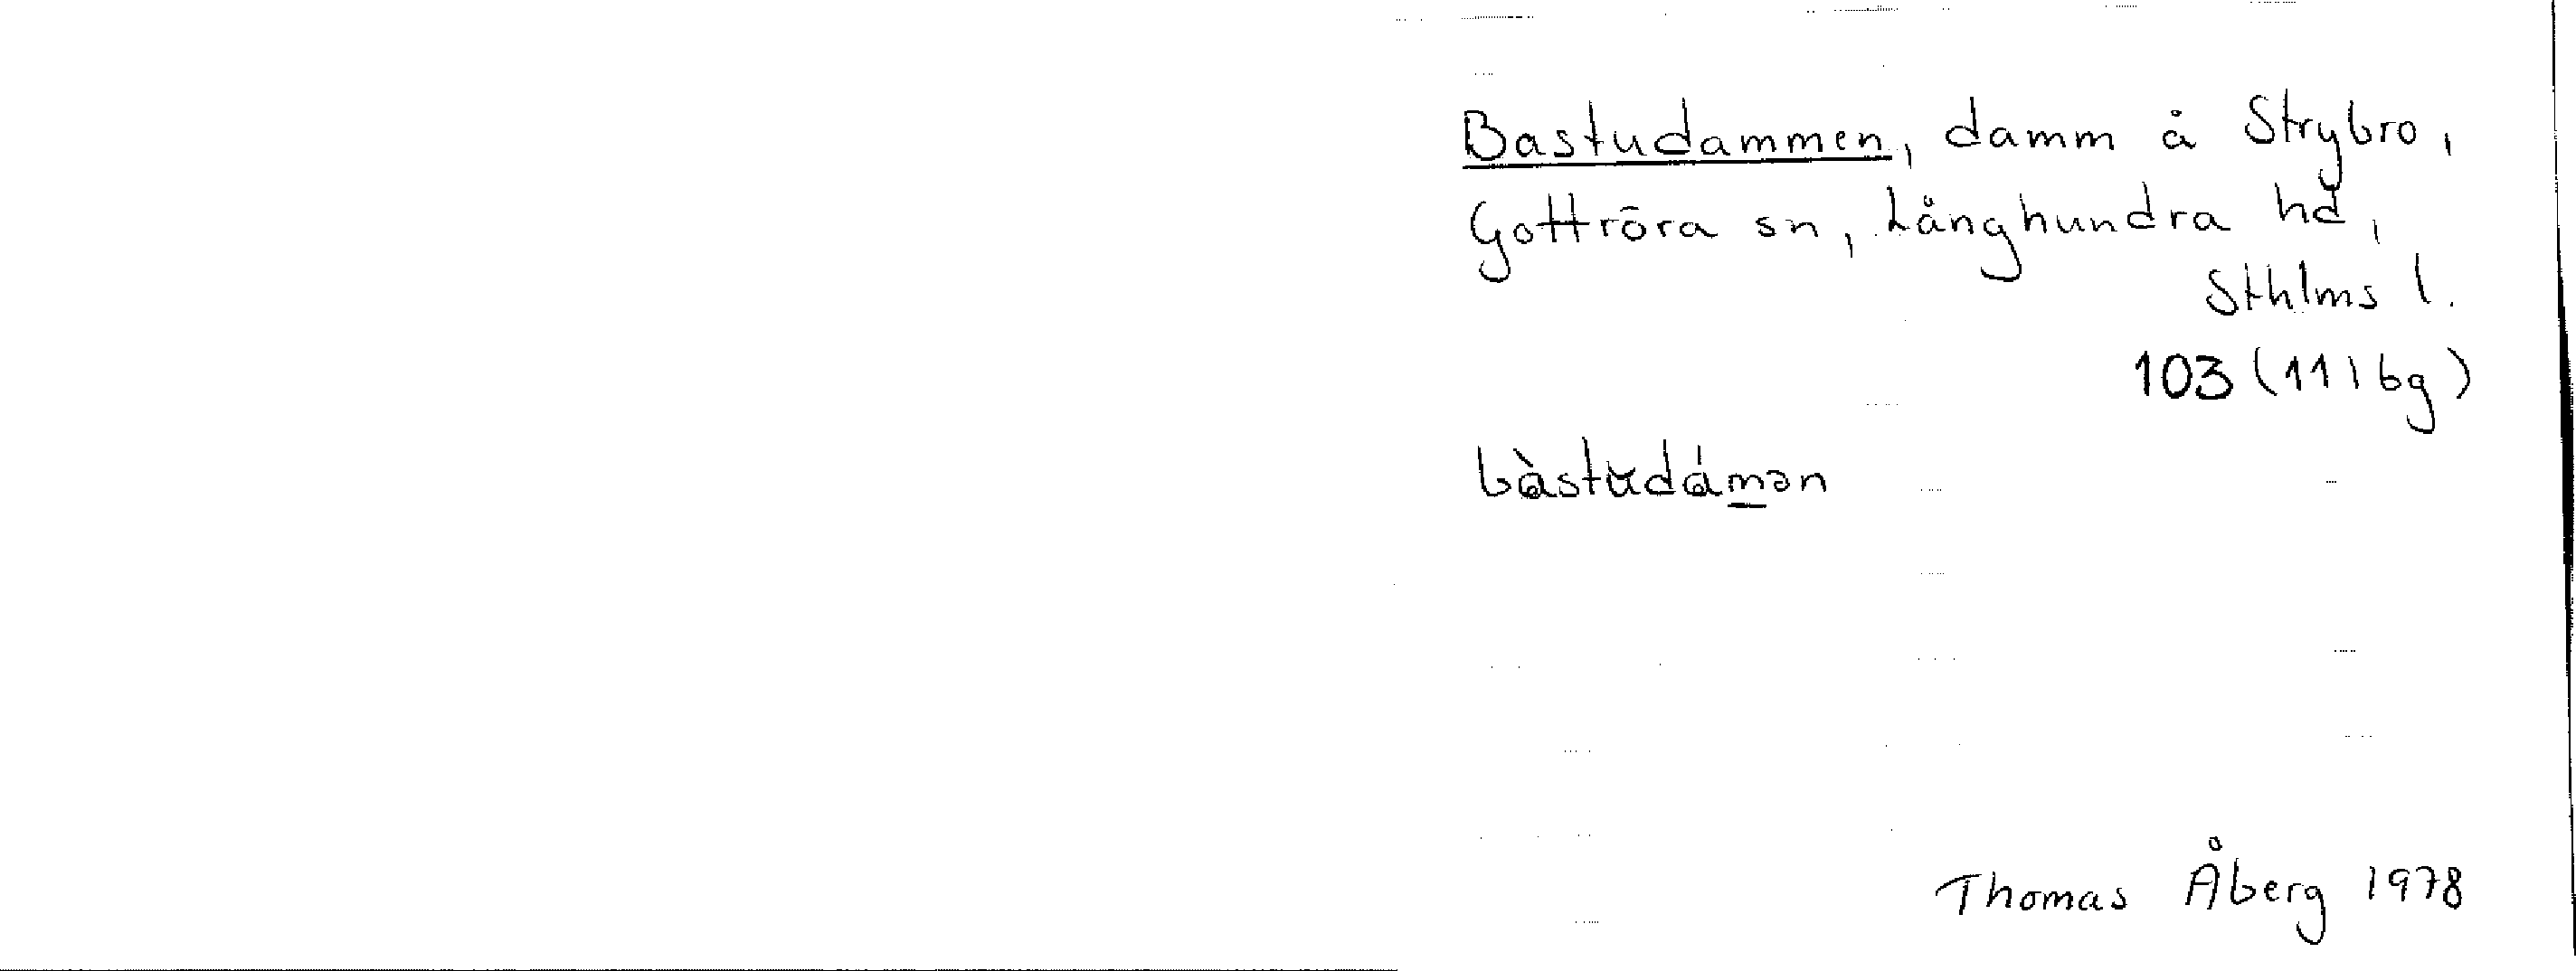 Bastudammen, damm å Strybro,
Gottröra sn, Långhundra hd,
Sthlms l.
103 (11 I bg)
bàstudámən
Thomas Åberg 1978